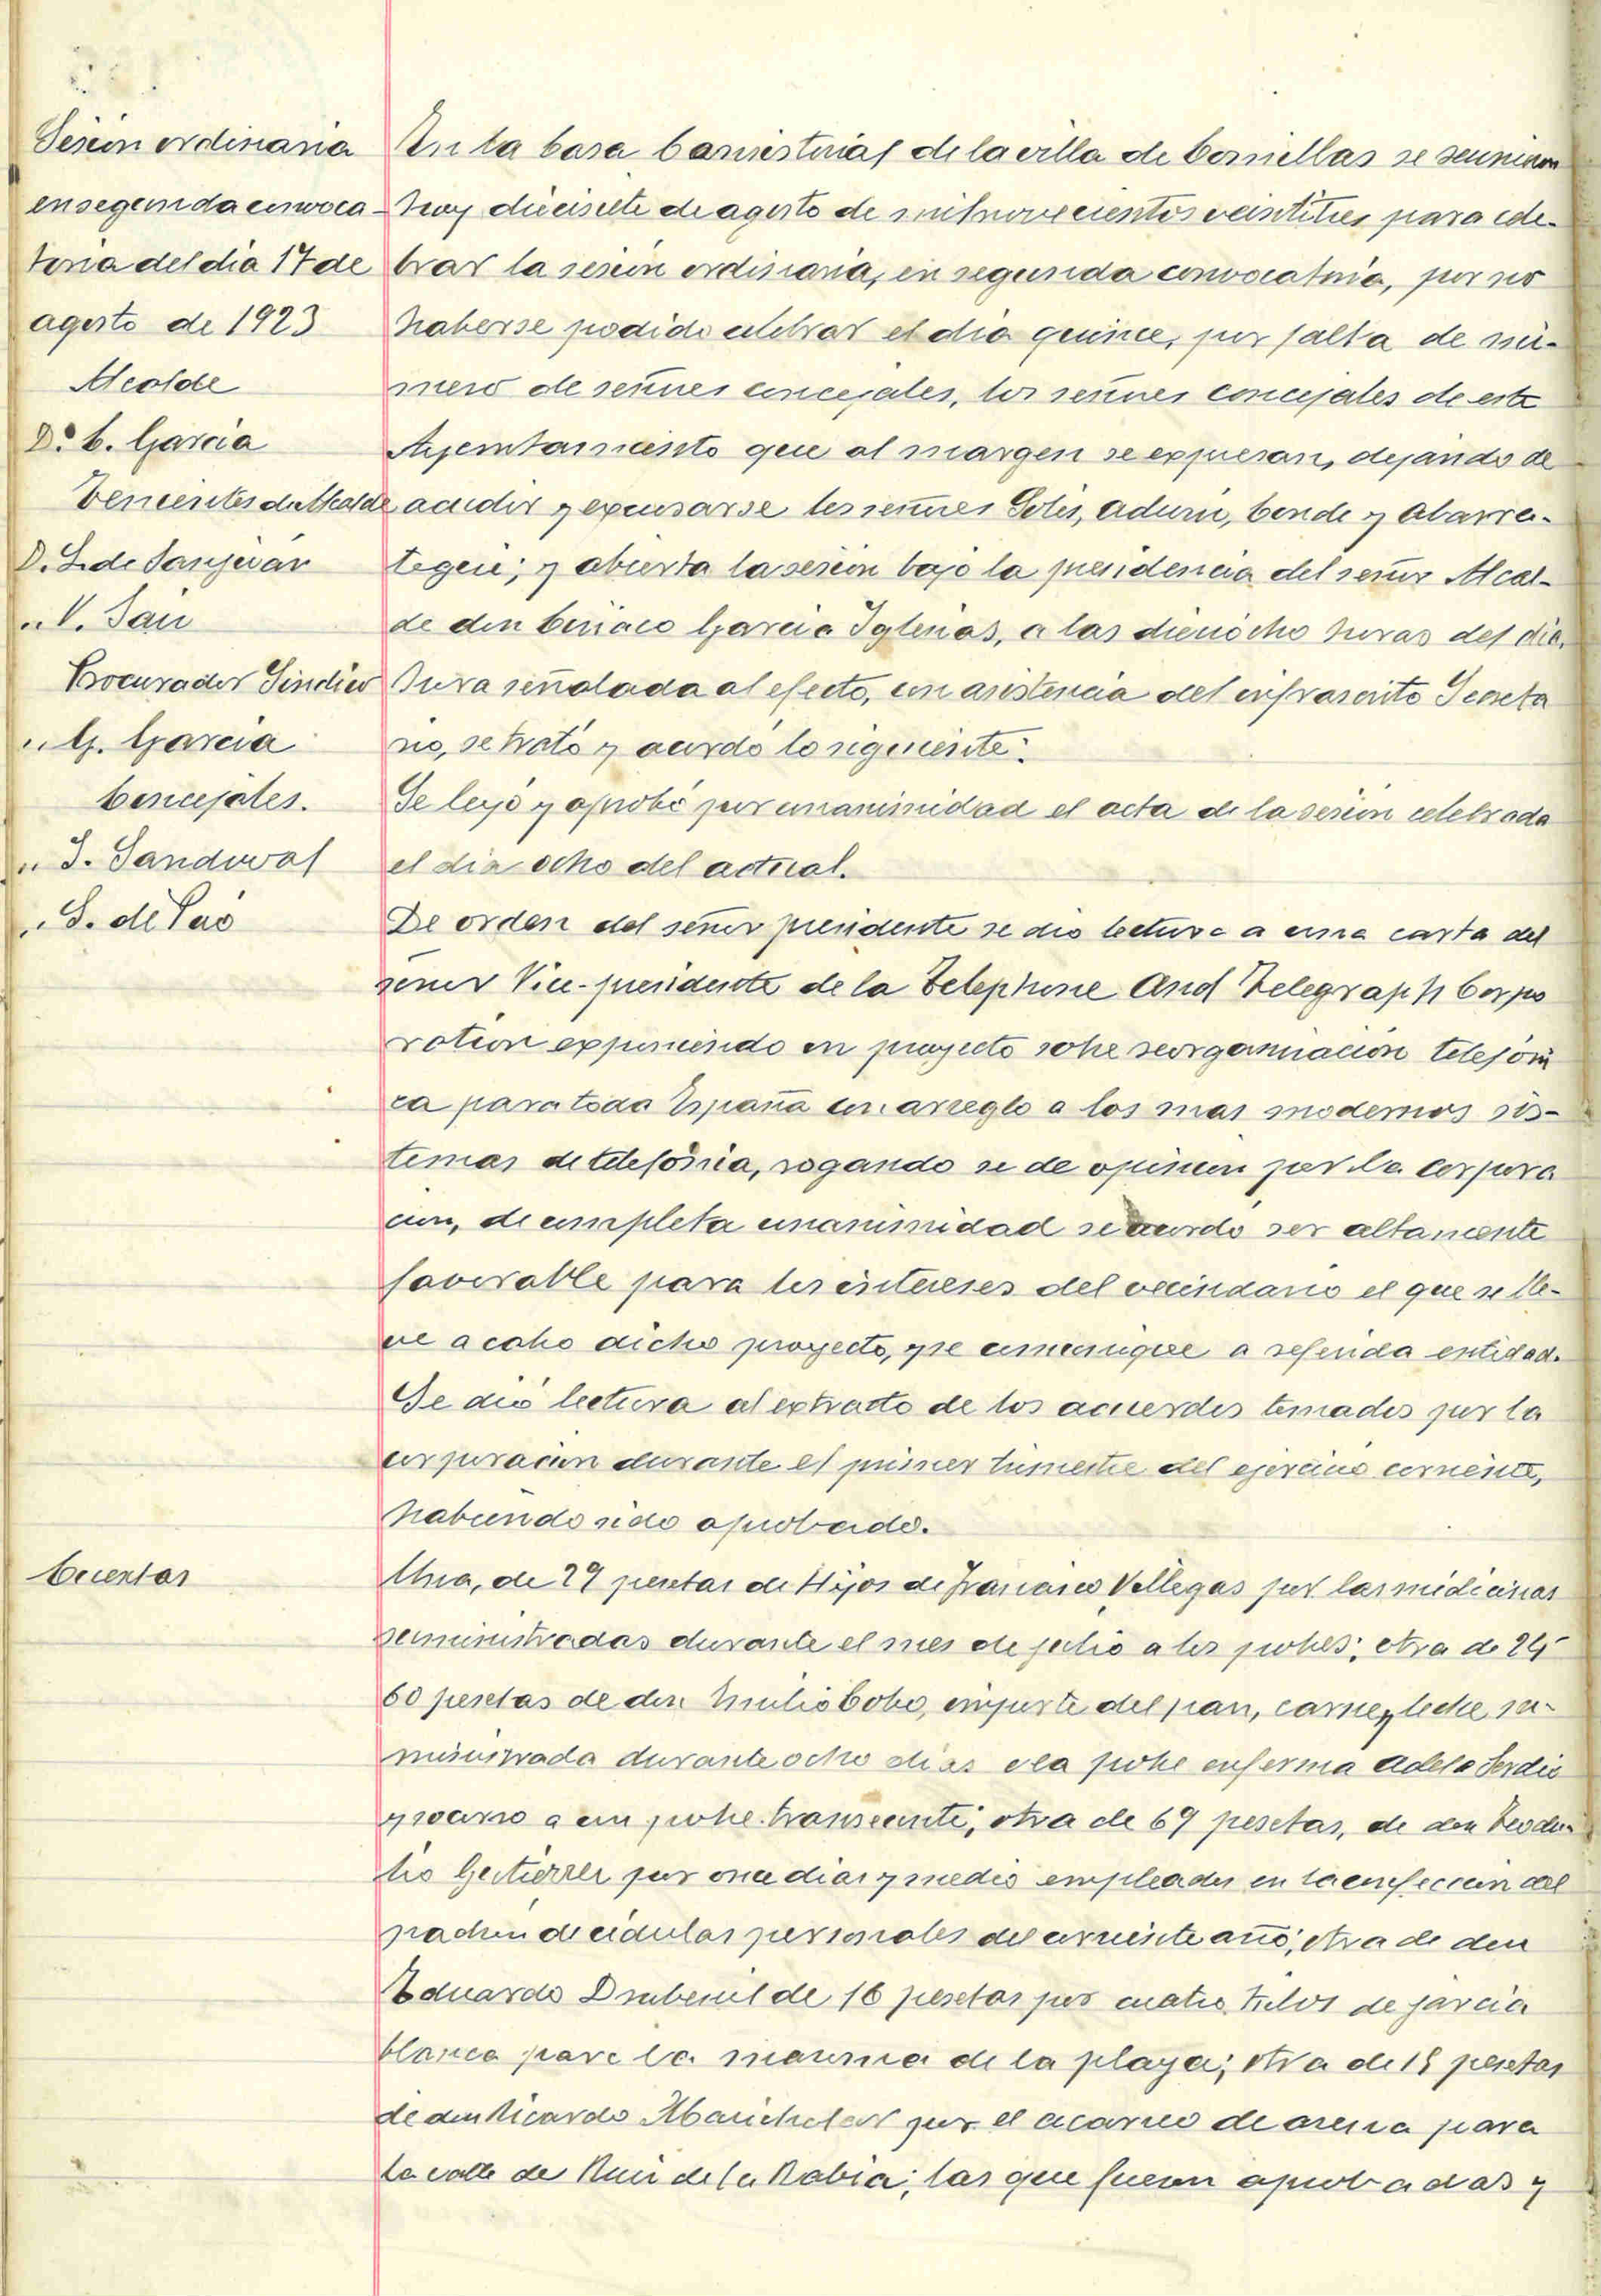 Sesión ordinaria
en segunda convoca-
toria del dia 17 de
agosto de 1923
Alcalde
D. C. Garcia
Tenientes de Alcalde
D. S. de Sanjuan
" V. Saiz
Procurador Sindico
" G. Garcia
Concejales.
" J. Sandoval
" S. de Paó
En la Casa Consistorial de la villa de Comillas se reunieron
hoy diecisiete de agosto de mil novecientos veintitres para cele-
brar la sesión ordinaria, en segunda convocatoria, por no
haberse podido celebrar el dia quince, por falta de nú-
mero de señores concejales, los señores concejales de este
Ayuntamiento que al margen se expresan, dejando de
acudir y excusarse los señores Solis, Aduriz, Conde y Abarra-
tegui; y abierta la sesión bajo la presidencia del señor Alcal-
de don Ciriaco Garcia Iglesias, a las dieciocho horas del dia,
hora señalada al efecto, con asistencia del infrascrito Secreta
rio, se trató y acordó lo siguiente:
Se leyó y aprobó por unanimidad el acta de la sesión celebrada
el dia ocho del actual.
De orden del señor presidente se dio lectura a una carta del
señor Vice-presidente de la Telephone And Telegraph Corpo
ration exponiendo un proyecto sobre reorganización telefóni
ca para toda España con arreglo a los mas modernos sis-
temas de telefónia, rogando se de opinion por la corpora
cion, de completa unanimidad se acordó ser altamente
favorable para los intereses del vecindario el que se lle-
ve a cabo dicho proyecto, y se comunique a referida entidad.
Se dió lectura al extracto de los acuerdos tomados por la
corporacion durante el primer trimestre del ejercicio corriente,
habiendo sido aprobado.
Cuentas
Una, de 29 pesetas de Hijos de Francisco Villegas por las medicinas
suministradas durante el mes de julio a los pobres; otra de 24'
60 pesetas de don Emilio Cobo, importe del pan, carne y leche su-
ministrada durante ocho dias a la pobre enferma Adela Serdio
y socorro a un pobre transeunte; otra de 69 pesetas, de don Teodu-
lio Gutierrez por once dias y medio empleados en la confeccion del
padron de cédulas personales del corriente año; otra de don
Eduardo de 16 pesetas por cuatro kilos de jarcia
blanca para la maroma de la playa; otra de 18 pesetas
de don Ricardo por el acarreo de arena para
la calle de Ruiz de la Rabia; las que fueron aprobadas y